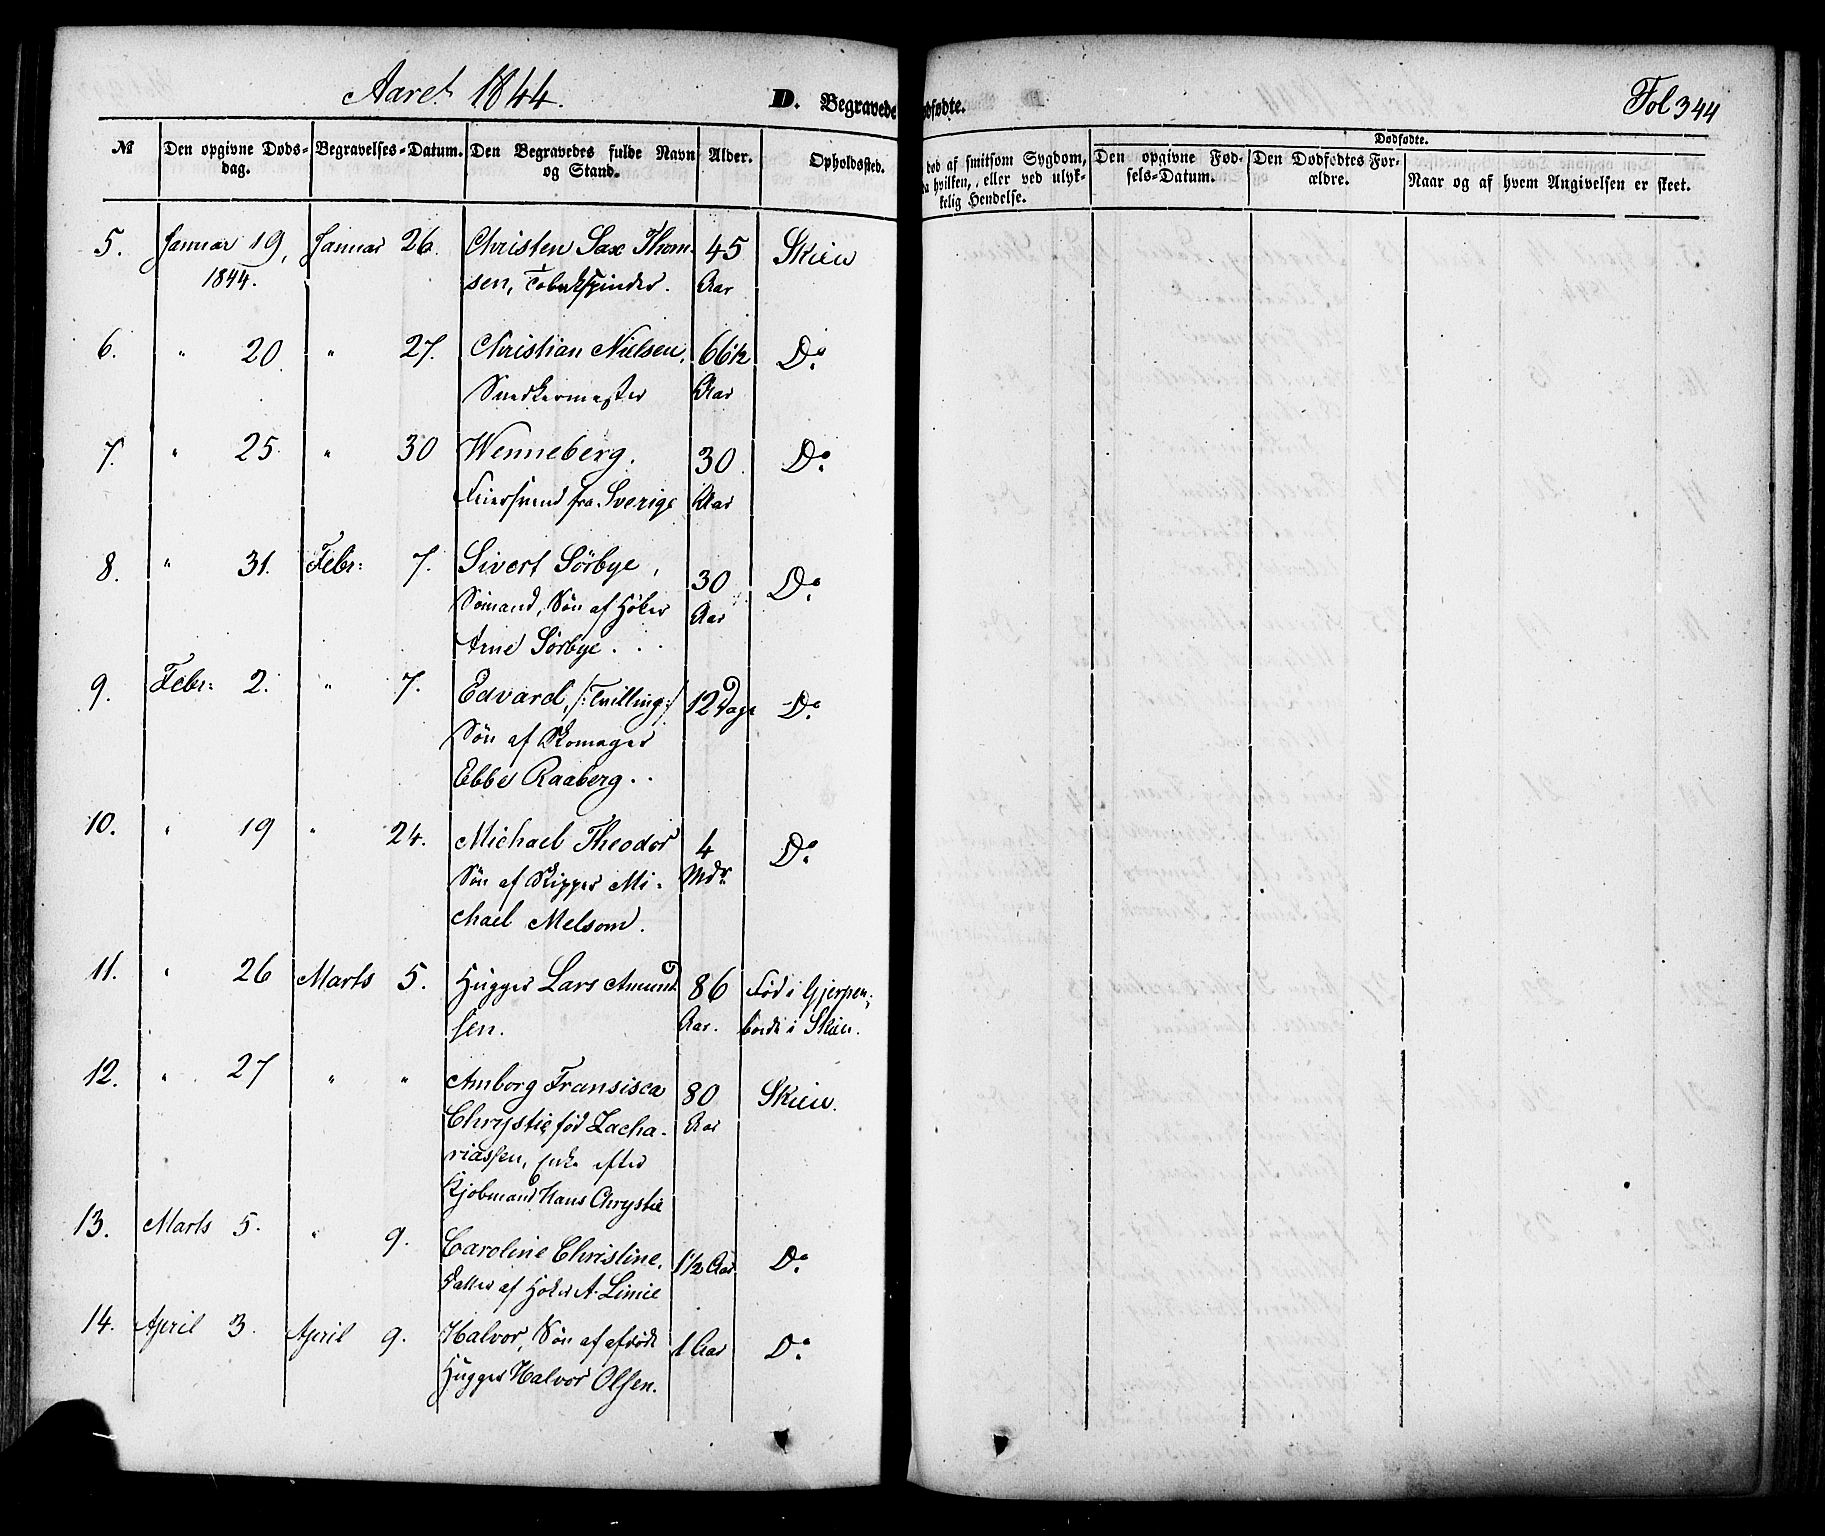 Aaret 1844.
D. Begravede
dfødte.
Fol 344
№
Den opgivne Døds-
dag.
Begravelses-Datum.
Den Begravedes fulde Navn
og Stand.
Alder.
Opholdssted.
død af smitsom Sygdom,
da hvilken, eller ved ulyk-
kelig Hendelse.
Dødfødte.
Den opgivne Fød-
sels-Datum.
Den Dødfødtes For-
ældre.
Naar og af hvem Angivelsen er skeet.
5. Januar 19, Januar 26. Christen Sax Thom- 45 Skien
1844. sen, Tobakspinder. Aar
6. " 20. " 27. Christian Nielsen, 66½ Do
Snedkermester Aar
7. " 25. " 30 Wenneberg. 30 Do
Feiersvend fra Sverige Aar
8. " 31. Febr: 7. Sivert Sörbye, 30 Do
Sømand, Søn af Høker Aar
Arne Sörbye. . .
9. Febr: 2. " 7. Edvard, /:Tvilling:/ 12 Dage Do
Søn af Skomager
Ebbe Raaberg. .
10. " 19 " 24. Michael Theodor 4 Do
Søn af Skipper Mi- Mdr.
chael Melsom.
11. " 26 Marts 5. Hugger Lars Amund 86 Fød i Gjerpen,
sen. Aar. boede i Skien.
12. " 27 " " Amborg Fransisca 80 Skien.
Chrystie, fød Zacha- Aar
riassen, Enke efter
Kjøbmand Hans Chrystie
13. Marts 5. " 9. Caroline Christine, 1½ Aar. Do
Datter af Høker A. Linie
14. April 3. April 9. Halvor, Søn af afdøde 1 Aar Do
Hugger Halvor Olsen.